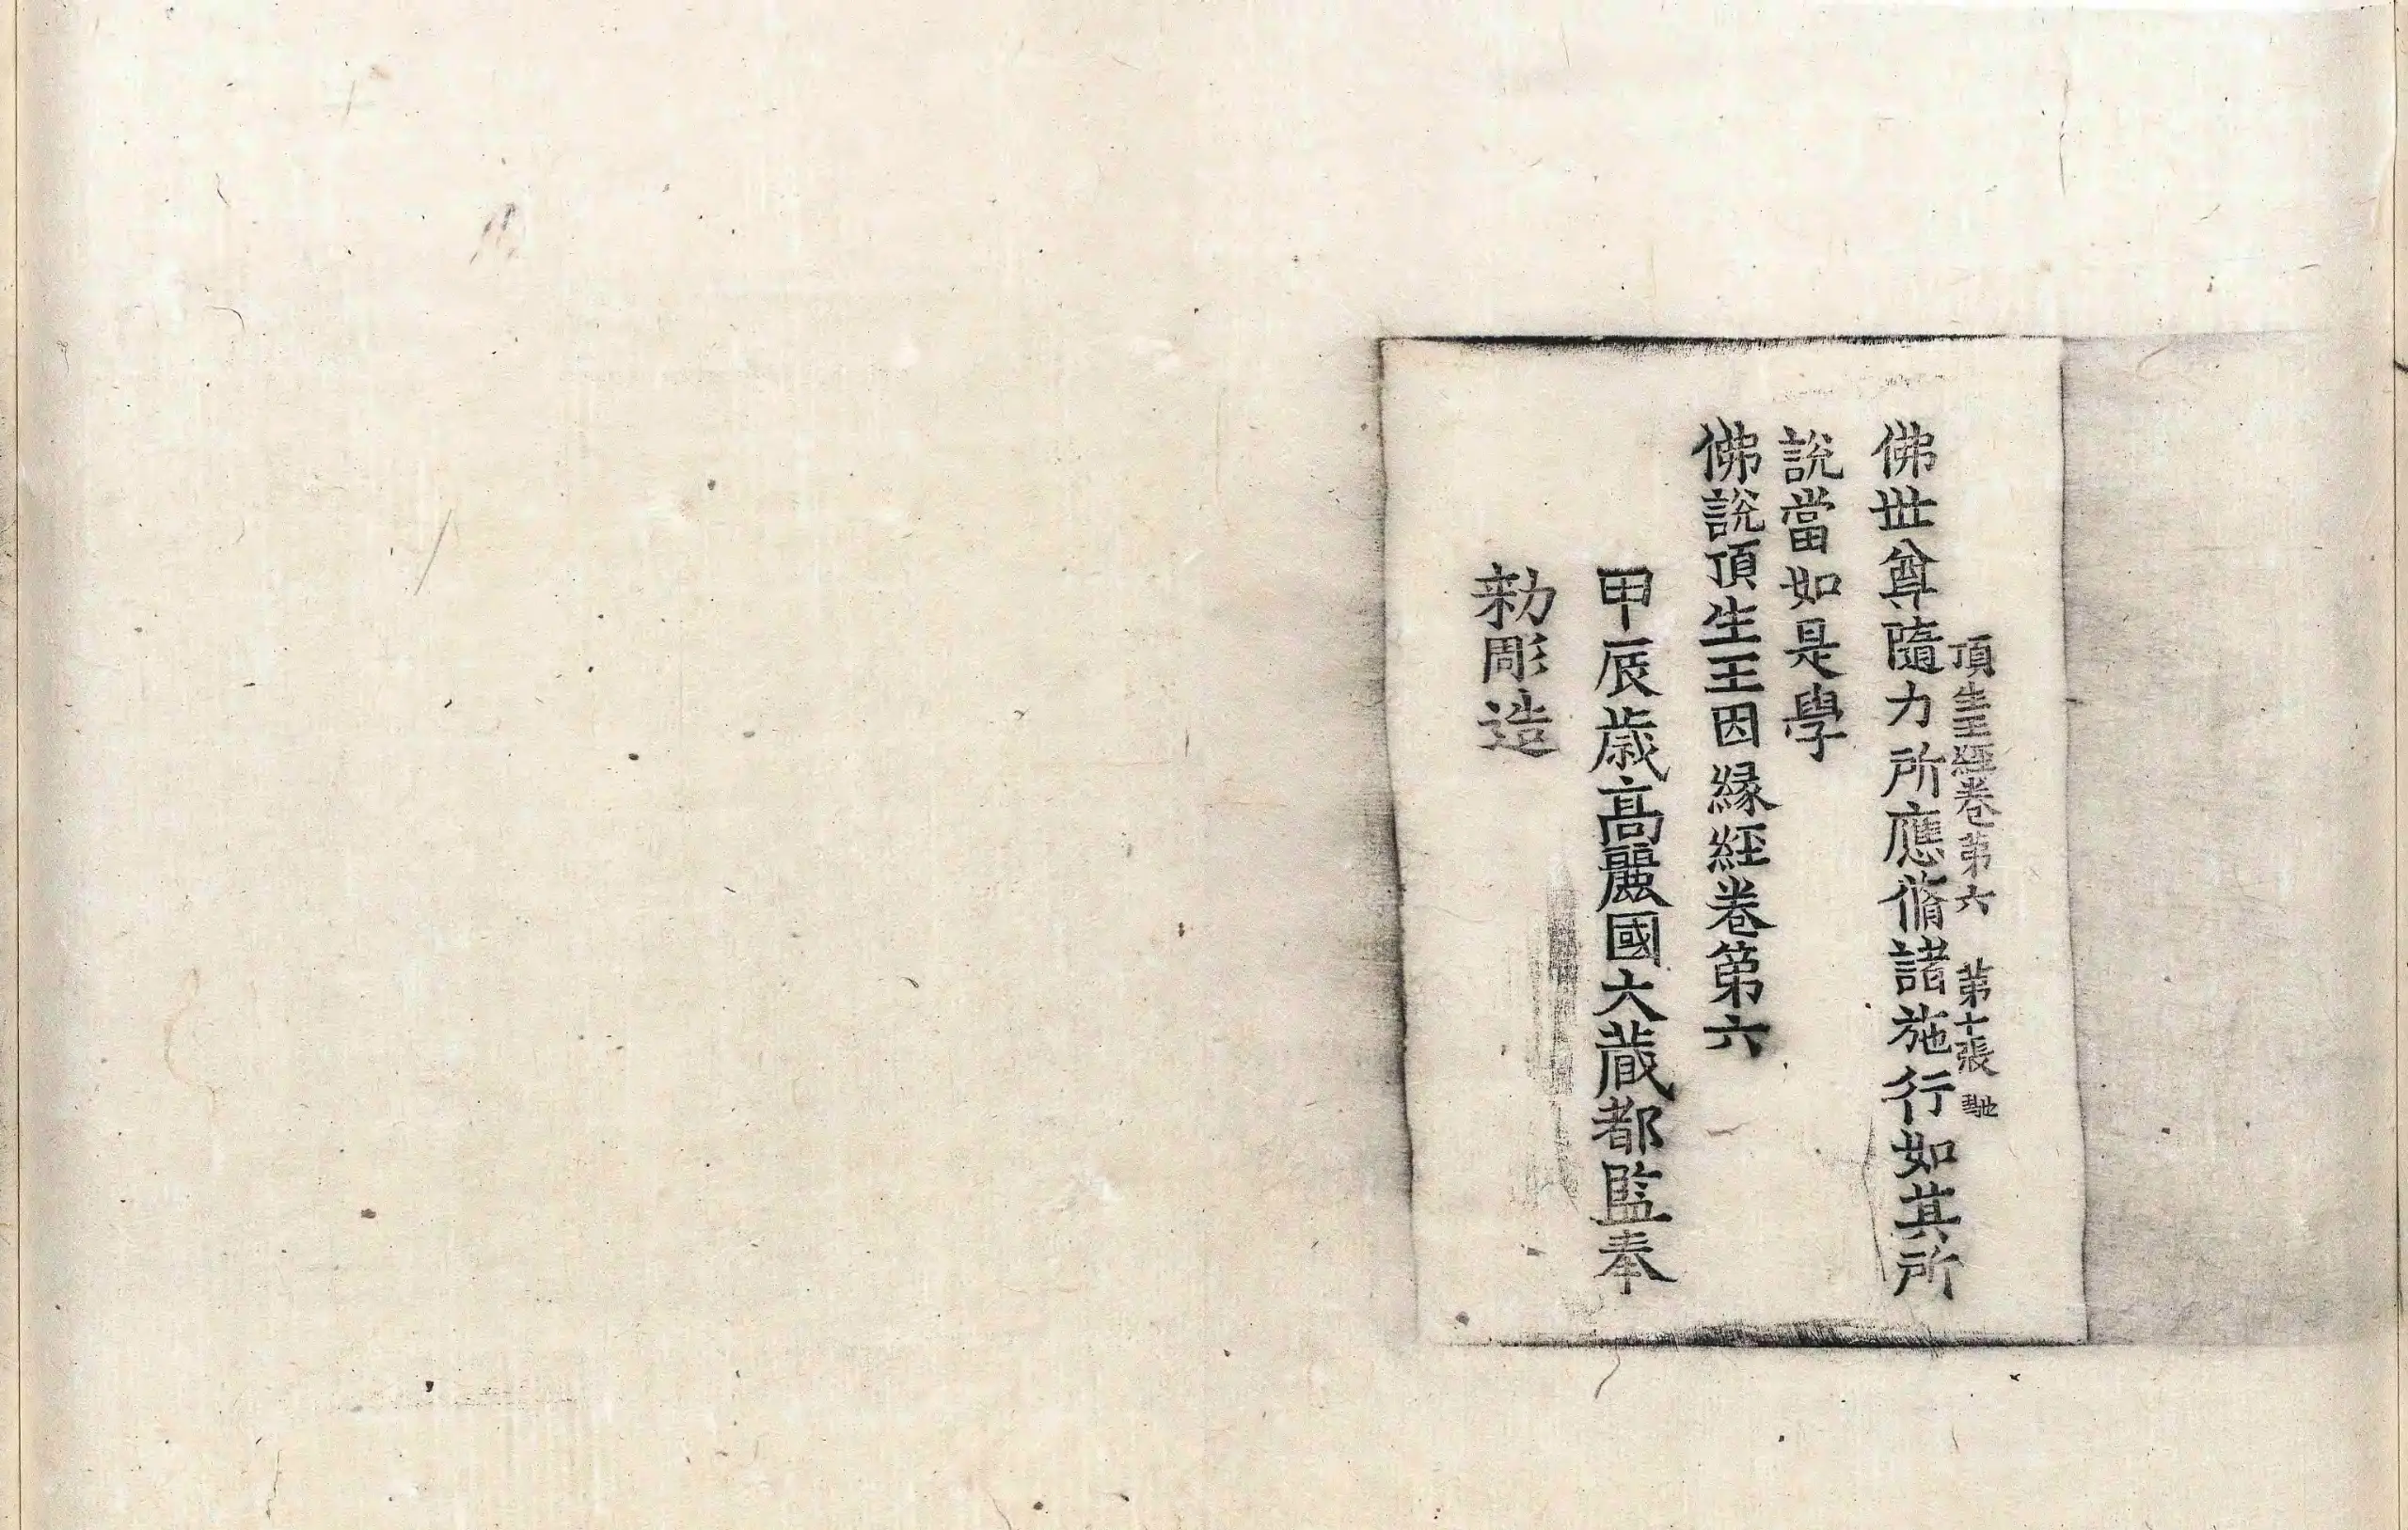 頂生王經卷第六 第十張 馳
佛世尊隨力所應脩諸施行如其所
說當如是學
佛說頂生王因緣經卷第六
甲辰歲高麗國大藏都監奉
勑彫造